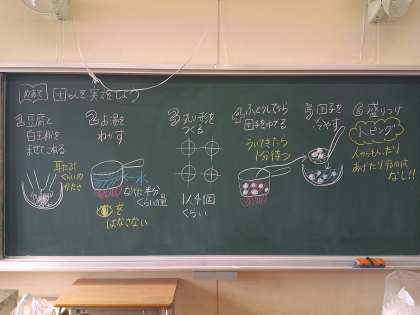 めあて
団らんを実でをしよう
① 豆腐と
白玉粉を
まぜてこねる
耳たぶ
くらいの
かたさ
② お湯を
わかす
←水
なべに半分
くらいの量
を
はなさない
③ 丸い形を
つくる
1人4個
くらい
④ ふっとうしてから
団子をゆでる
ういてきたら
1分待つ
⑤ 団子を
冷やす
⑥ 盛りつけ
トッピング
なし!!